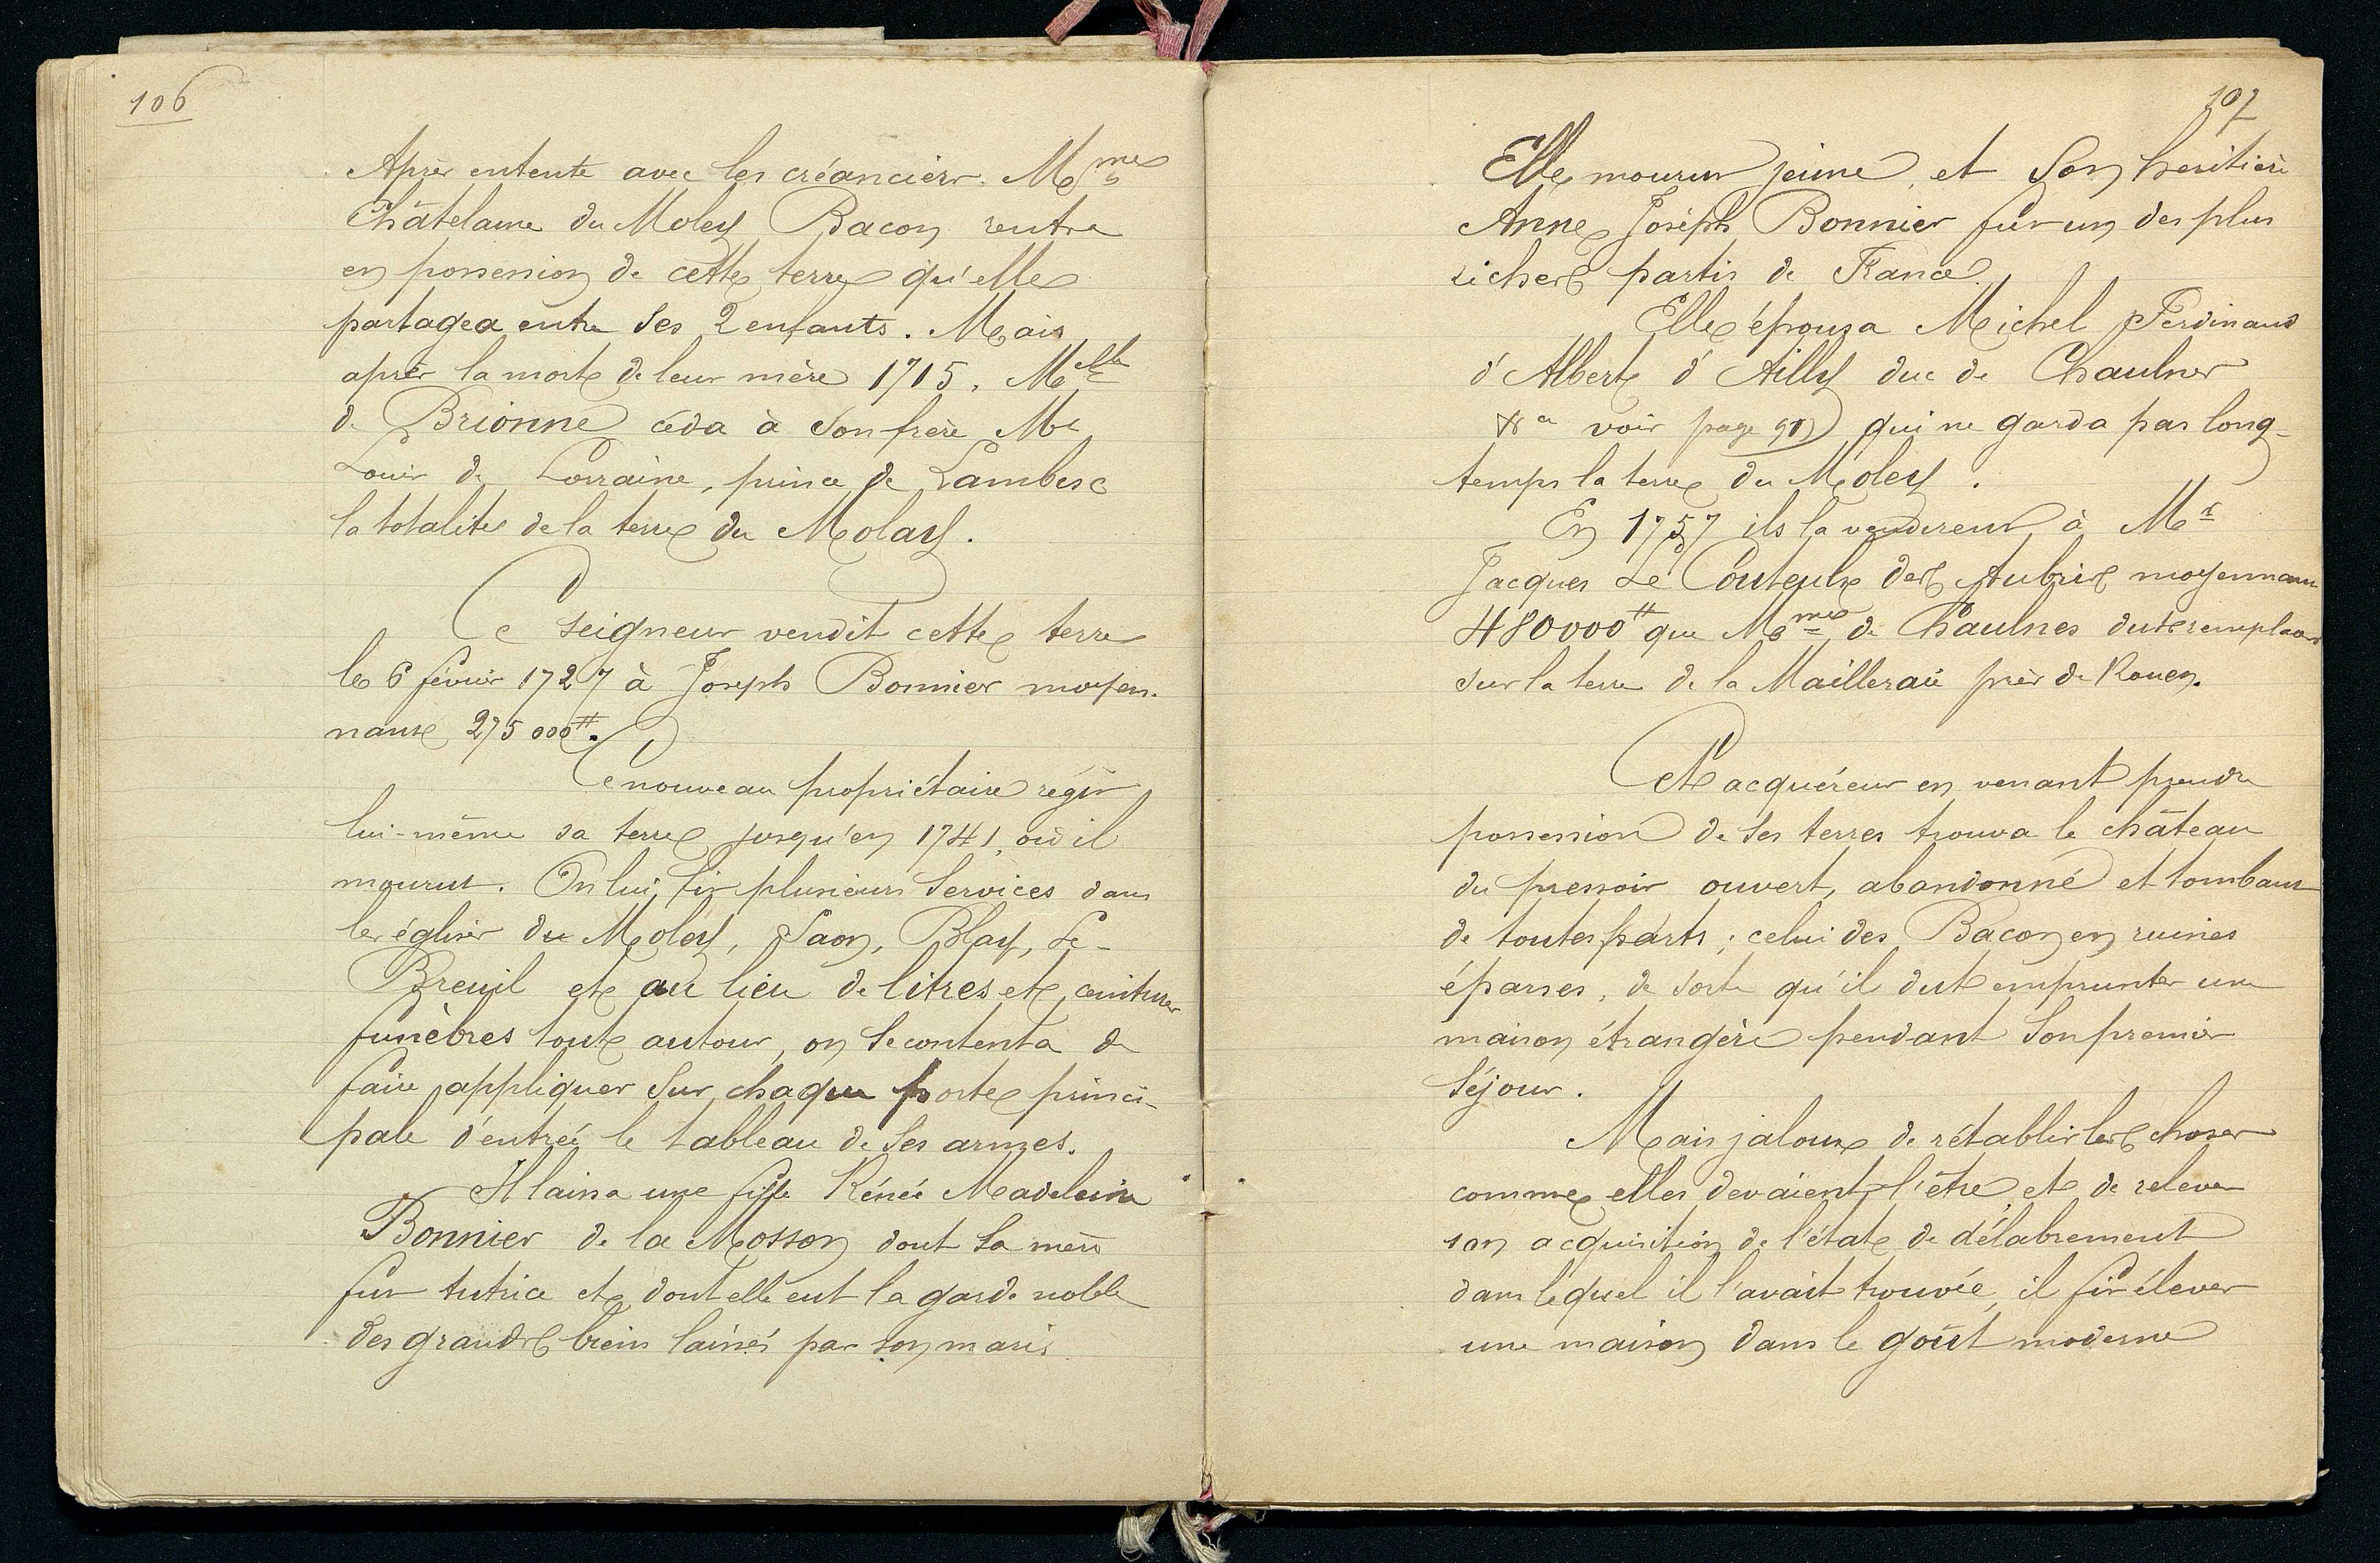 106
Après entente avec les créanciers. Mme
Châtelaine du Moley Bacon rentra
en possession de cette terre qu'elle
partagea entre ses 2 enfants. Mais
après la mort de leur mère 1715. Melle
de Brionne céda à son frère Mr
Louis de Lorraine, prince de Lambesc
la totalité de la terre du Molay.
Ce seigneur vendit cette terre
le 6 février 1727 à Joseph Bonnier moyen-
nant 275 000#.
Ce nouveau propriétaire régit
lui-même sa terre jusqu'en 1741, où il
mourut. On lui fit plusieurs services dans
les églises du Moley, Saon, Blay, Le-
Breuil et au lieu de litres et ceintures
funèbres tout autour, on se contenta de
faire appliquer sur chaque porte princi-
pale d'entrée le tableau de ses armes.
Il laissa une fille Rénée Madeleine
Bonnier de la Mosson dont sa mère
fut tutrice et dont elle eut la garde noble
des grands biens laissés par son mari
107
Elle mourut jeune, et son heritière
Anne Joseph Bonnier fut un des plus
riches partis de France.
Elle épousa Michel Ferdinand
d'Albert d'Ailly duc de Chaulnes
&a voir page 91) qui ne garda pas long-
temps la terre du Moley.
En 1757 ils la vendirent à Mr
Jacques Le Couteulx des Aubris moyennant
480000# que Mme de Chaulnes dut remplacer
sur la terre de la Mailleraie près de Rouen.
Cet acquéreur en venant prendre
possession de ses terres trouva le château
du pressoir ouvert, abandonné et tombant
de toutes parts ; celui des Bacon en ruines
éparses, de sorte qu'il dut emprunter une
maison étrangère pendant son premier
séjour.
Mais jaloux de rétablir les choses
comme elles devaient l'être et de relever
son acquisition de l'état de délabrement
dans lequel il l'avait trouvée, il fit élever
une maison dans le goût moderne